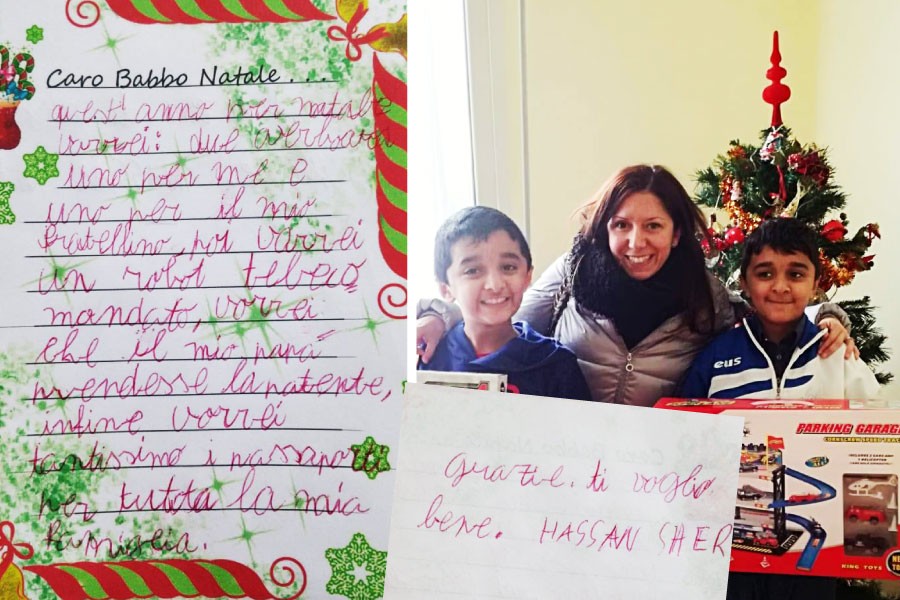 Caro Babbo Natale . . .
quest'anno per natale
vorrei: due
uno per me e
uno per il mio
fratellino, poi vorrei
un robot
mandato, vorrei
che il mio papà
prendesse la patente,
infine vorrei
tantissimo i passaporti
per tutota la mia
famiglia.
grazie. ti voglio
bene. HASSAN SHER
eus
PARKING GARAG
CORKSCREW SPEED TRAC
KING TOYS